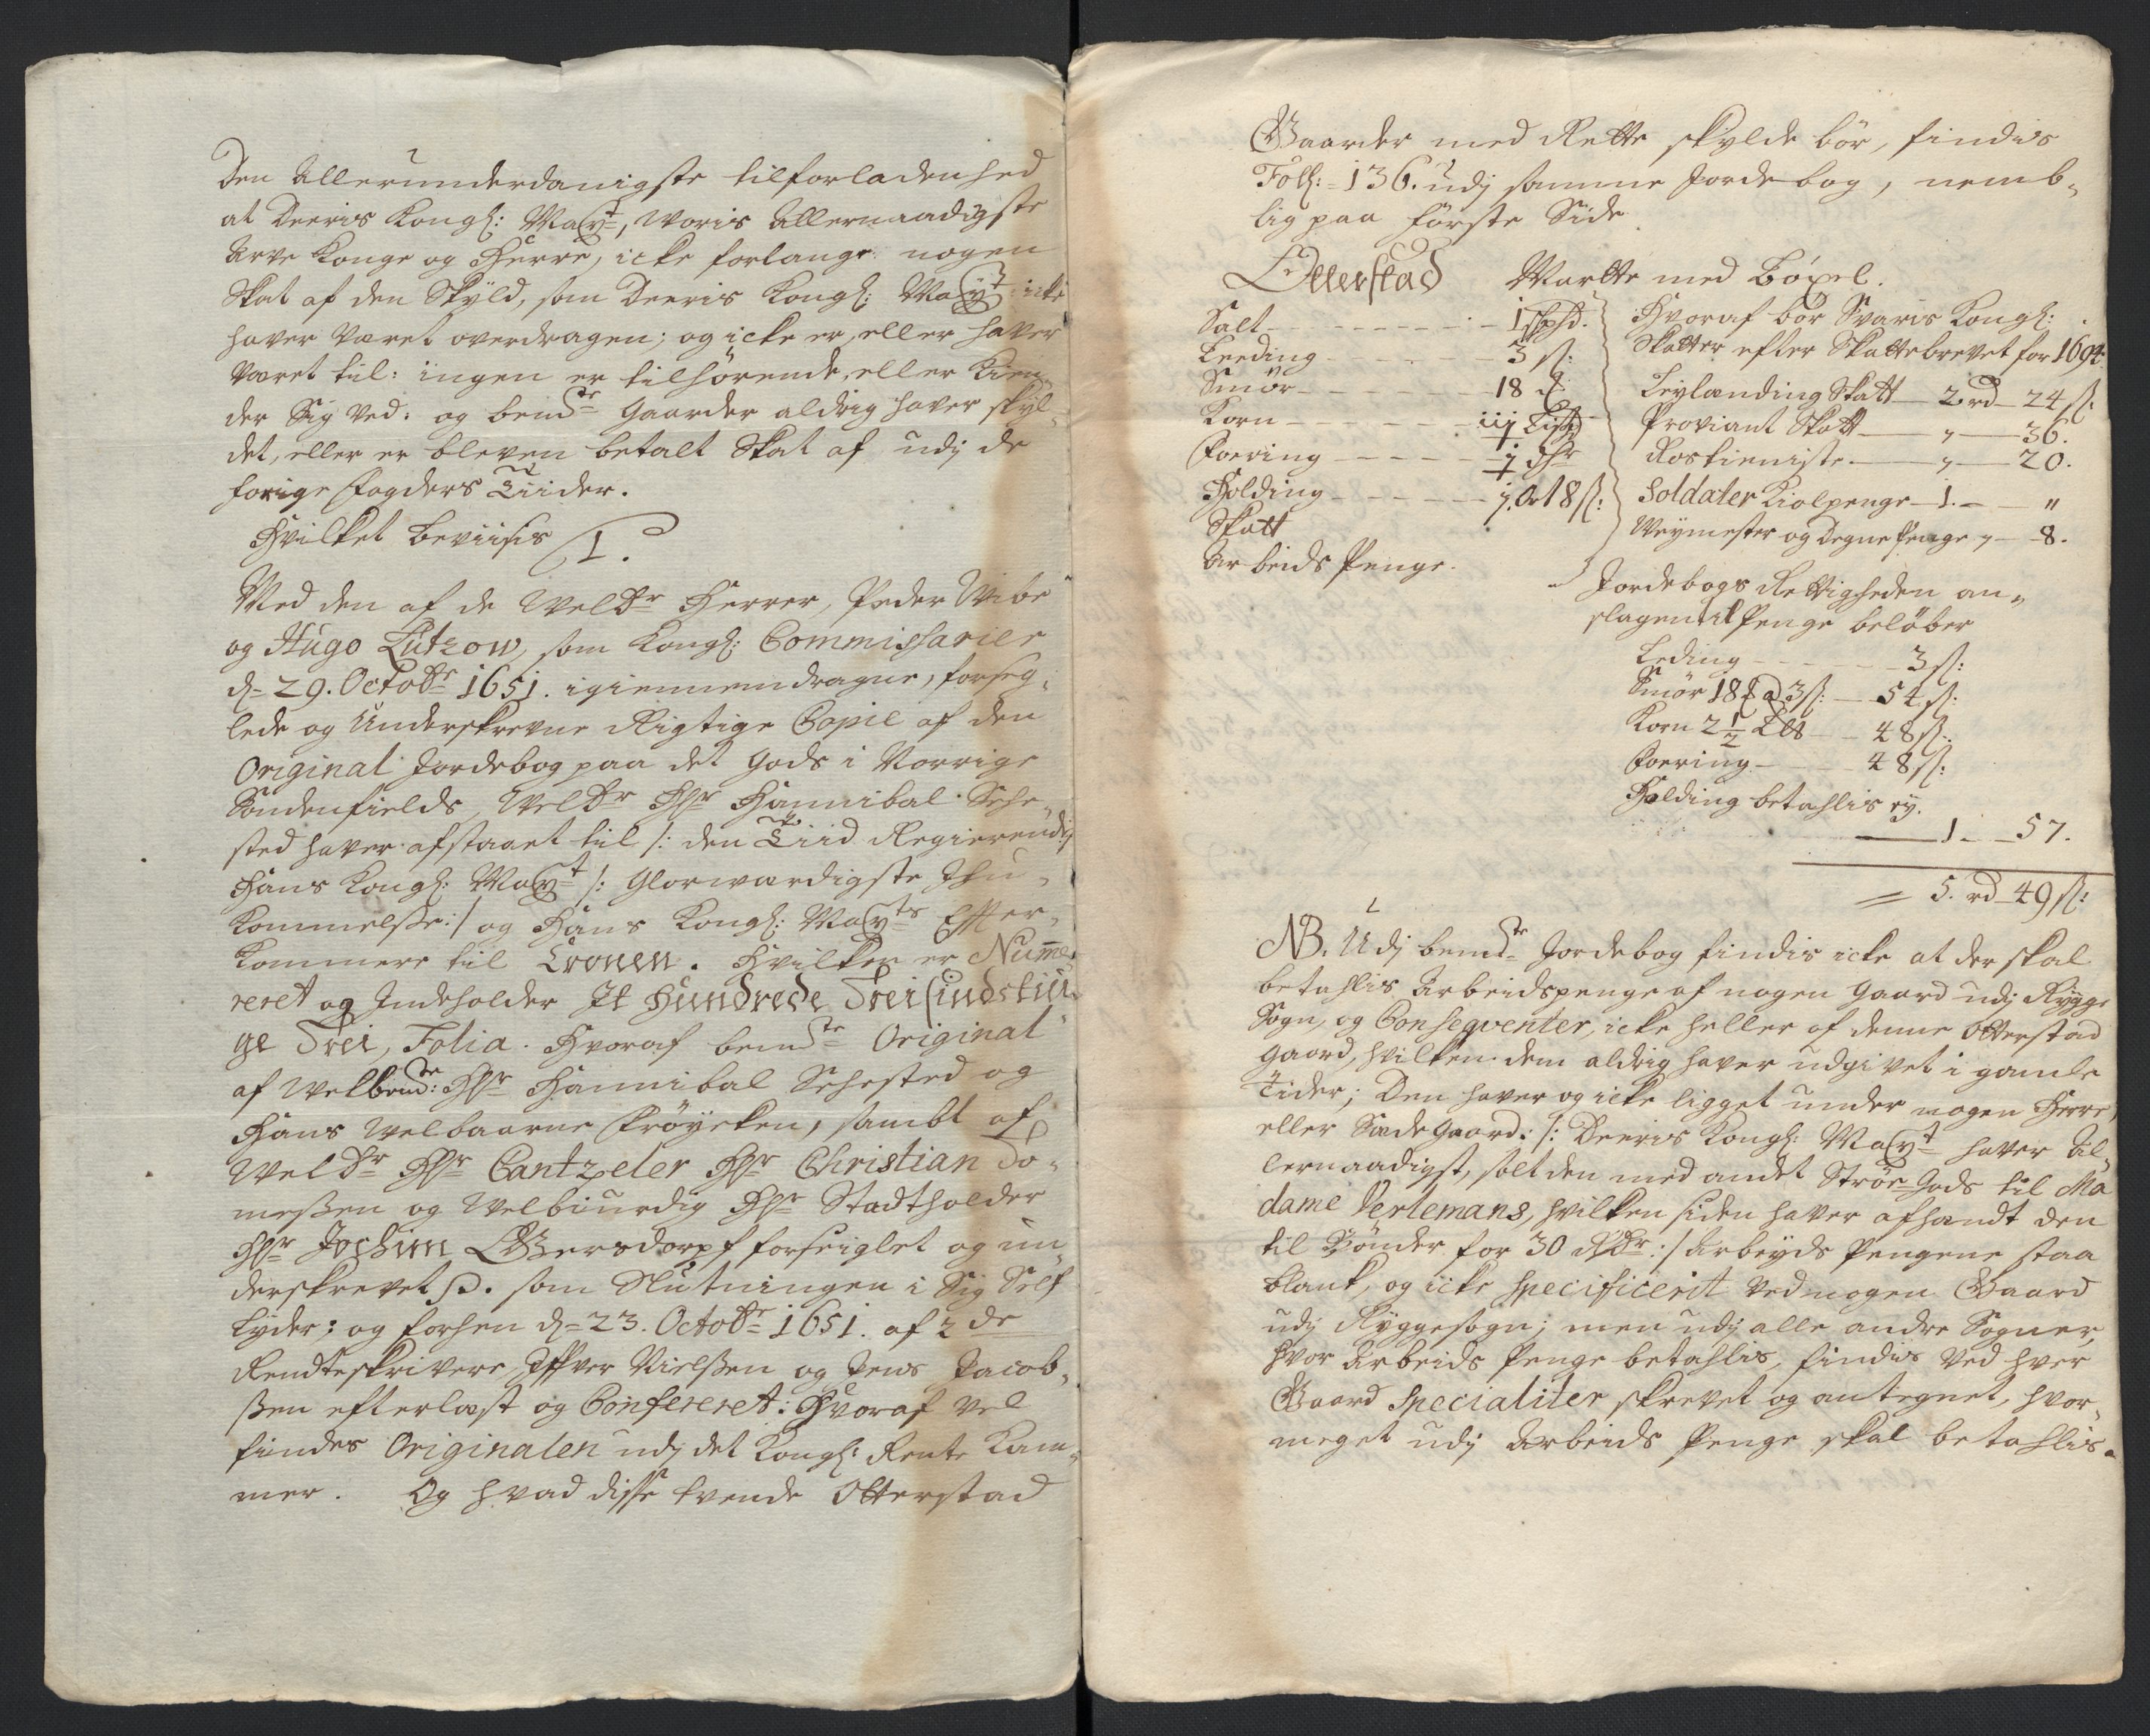 Den Allerunderdanigste tilforladenhed
at Deeris Kongl: Mayt, Woris Allernaadigste
Arve Konge og Herre, icke forlange nogen
Skat af den Skyld, som Deeris Kongl: Mayt icke
haver været overdragen; og icke er, eller haver
været til: ingen er tilhörende, eller kien
der Sig Ved: og bemdte Gaarder aldrig haver skyl-
det, eller er bleven betalt Skat af udj de
forrige Fogders Tiider.
Hvilket Beviisis
1.
Med den af de Welbr Herrer, Peder Wibe
og Hugo Lützow, som Kongl: Commissarier
d= 29. Octobr 1651. igiennemdragne, forseg-
lede og Underskrevne Rigtige Copie af den
Original Jordebog paa det Gods i Norrige
Söndenfields, Welbr Hr Hannibal Sehe-
sted haver afstaaet til /: den Tiid Regierende
Hans Kongl: Mayt /: Glorwærdigste Ihu-
kommelsse:/ og Hans Kongl: Mayts Effter-
kommere til Cronen. Hvilken er Numme-
reret og Indeholder Jt Hundrede Treisindstiu-
ge Trei, Folia. Hvoraf bemdte Original
af Welbemdte: Hr Hannibal Sehested og
Hans Welbaarne Fröycken, sambt af
Welbr Hr Cantzeler Hr Christian To-
messen og Welbiurdig Hr Stadtholder
Hr Jochim Gersdorpf forseiglet og un-
derskrevet P. som Slutningen i Sig Self
Lyder; og forhen d= 23. Octobr 1651. af 2de
Rendteskrivere Iffver Nielssen og Jens Jacob-
ssen efterlæst og Confereret: Hvoraf Vel
findes Originalen udj det Kongl: Rente Kam-
mer. Og hvad disse tvende Otterstad
Gaarder med Rette skylde bör, findis
Foll: 136. udj samme Jordebog, nemb-
lig paa förste Side
Otterstad Martte med Böxel.
Salt 1 shpd.
Leeding 3 s:
Smör 18 lb
Korn iij
Foering
Holding 18 s:
Skatt
Arbeids Penge.
Hvoraf bör Svaris Kongl:
Skatter efter Skattebrevet for 1694.
Leylænding Skatt 2 rd 24 s:
Proviant Skatt " 36.
Rostieniste " 20.
Soldater Kiolpenge 1. "
Weymester og Degne Penge " 8.
Jordebogs Rettigheden an-
slagen til Penge belöber
Leding 3 s:
Smör 18 lb a 3 s: 54 s:
Korn 2 1/2 48 s:
Foering 48 s:
Holding betahlis ey.
1 57.
= 5. rd 49 s:
NB. Udj bemdte Jordebog findis icke at der skal
betahlis Arbeidspenge af nogen Gaard udj Rygge
Sogn, og Conseqventer, icke heller af denne Otterstad
Gaard, hvilken dem aldrig haver udgivet i gamle
Tider; Den haver og icke ligget under nogen Herre,
eller Sædegaard: /: Deeris Kongl: Mayt haver Al-
lernaadigst, solt den med andet Ströe Gods til Ma
dame Verlemans, hvilken siden haver afhandt den
til Bönder for 30 Rdr :/ Arbeyds Pengene staa
blank, og icke specificerit Ved nogen Gaard
udj Ryggesogn; men udj alle andre Sogner,
hvor Arbeids Penge betahlis, findis Ved hver
Gaard Specialiter skrevet og antegnet, hvor-
meget udj Arbeids Penge skal betahlis.